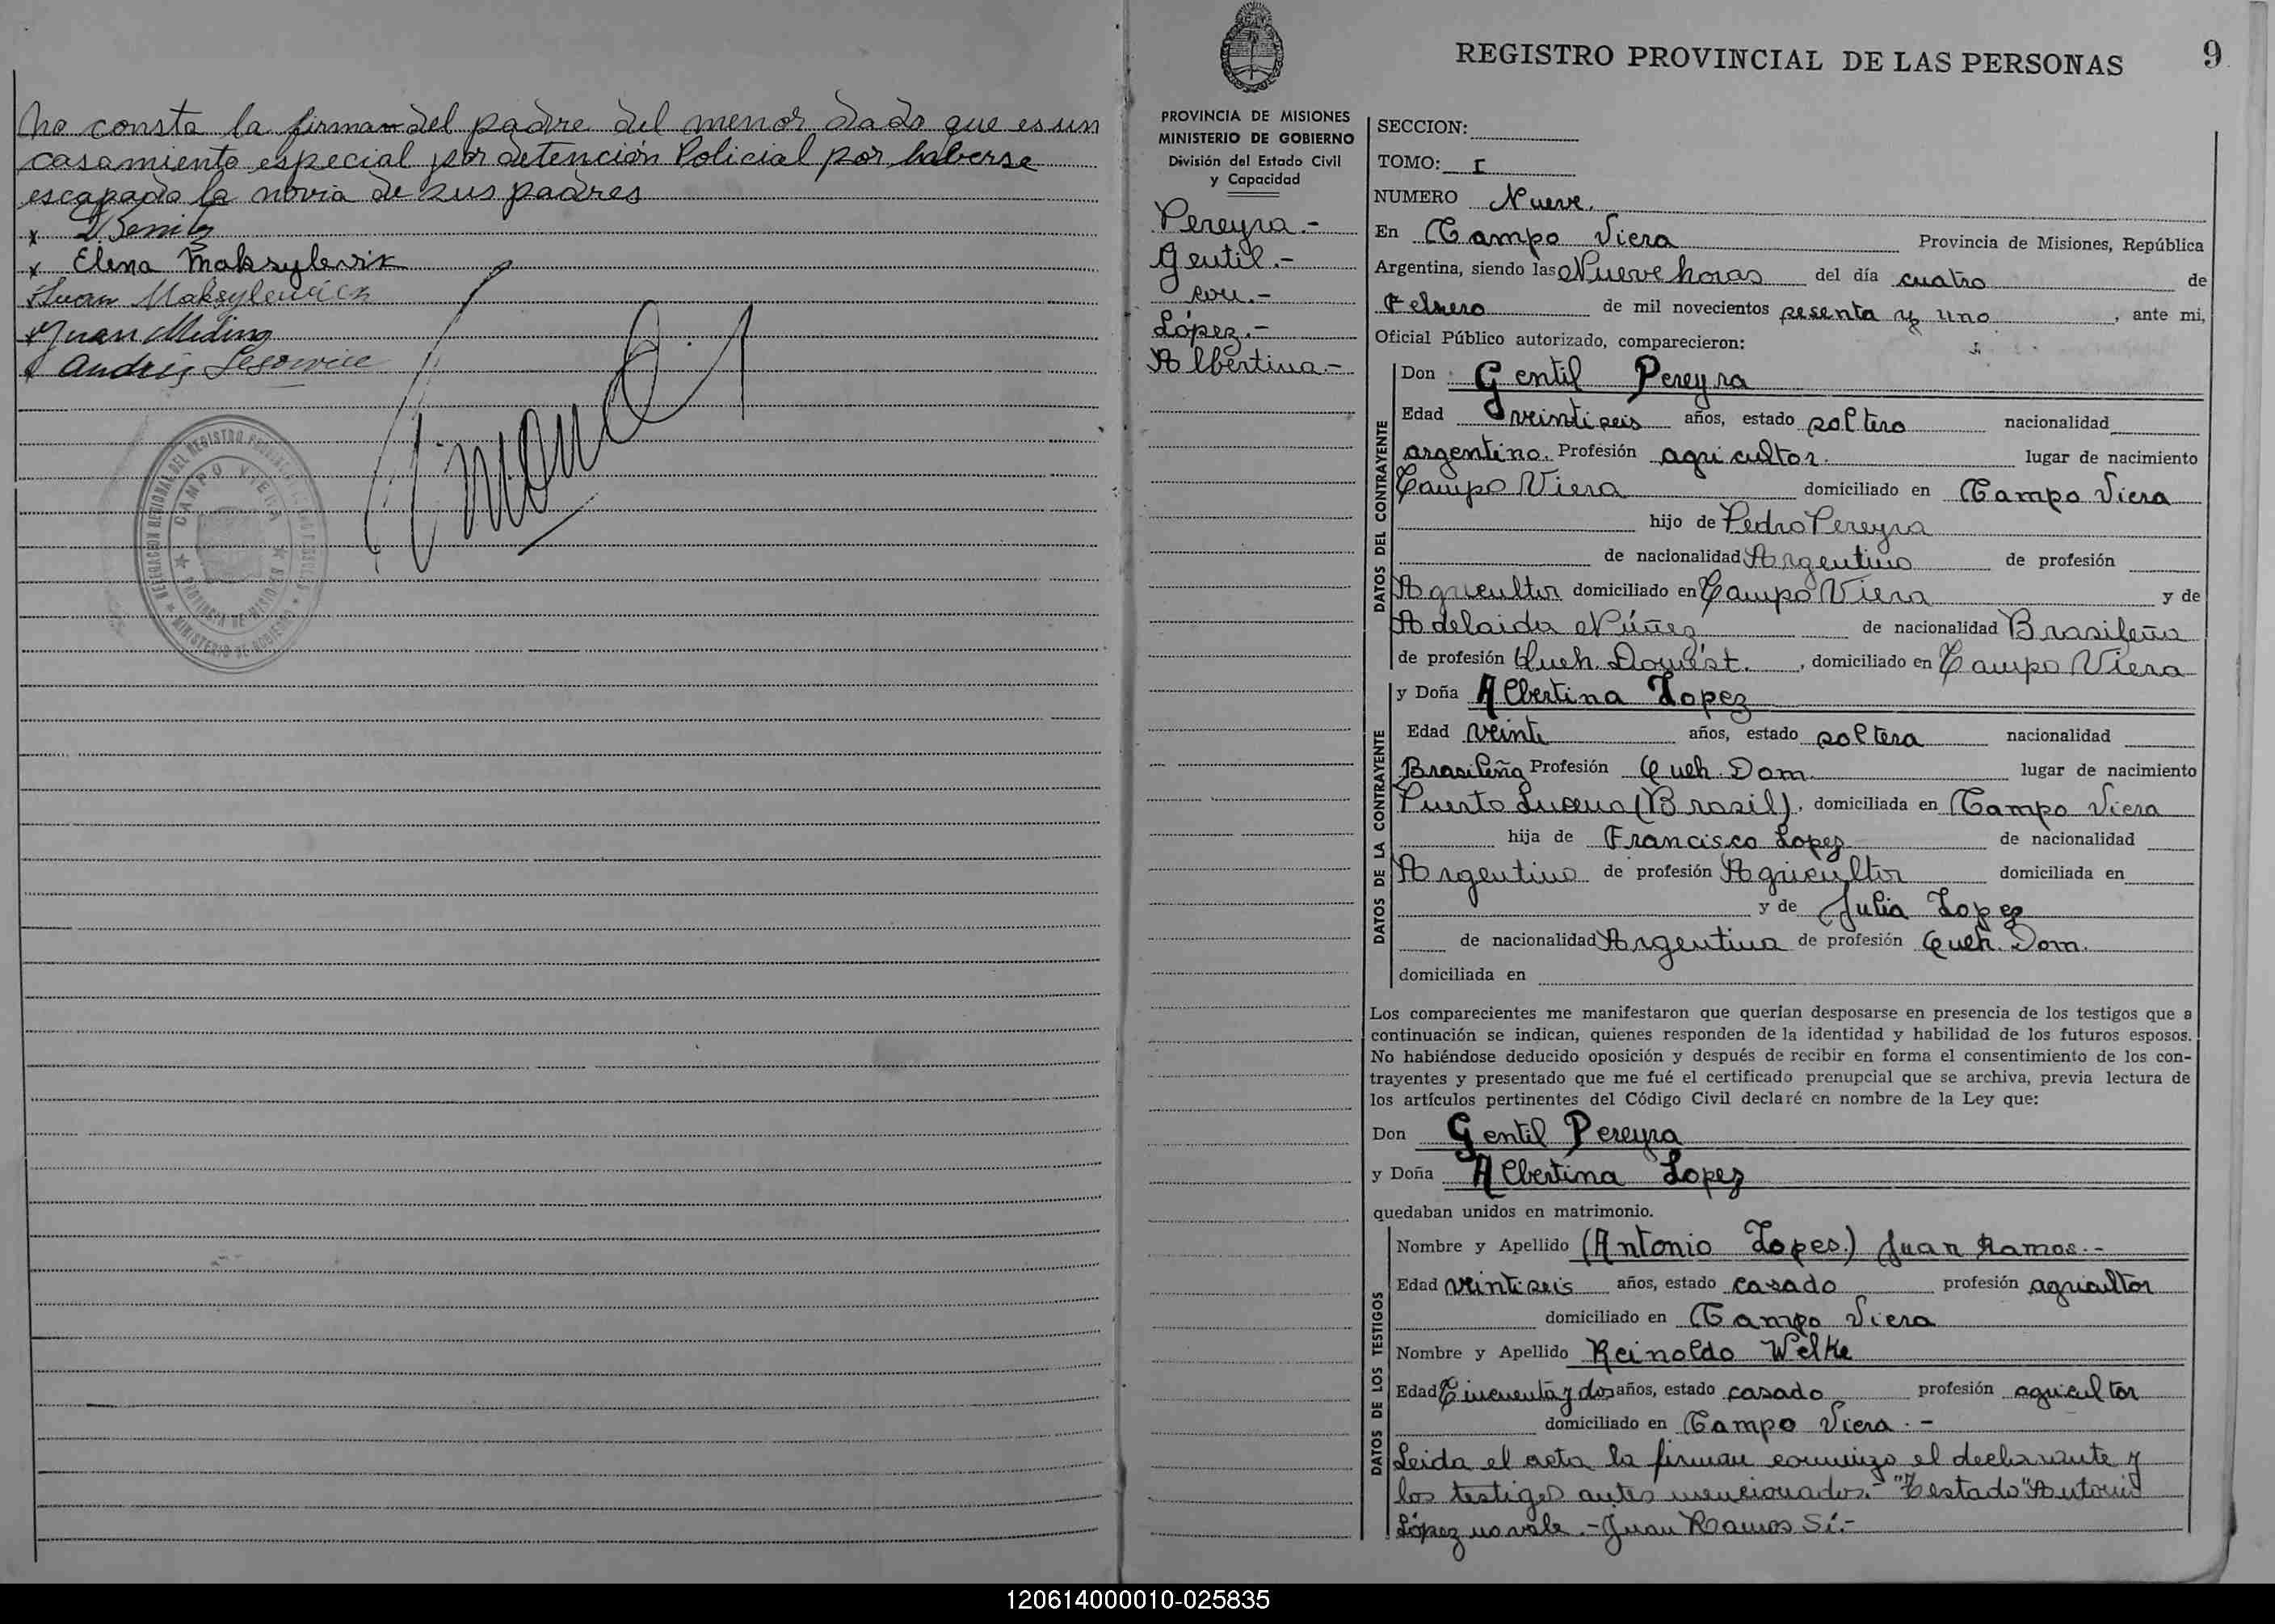 No consta la firma del padre del menor dado que es un
casamiento especial por detención Policial por haberse
escapado la novia de sus padres
x Benitez
x Elena Maksylevix
x Juan Maksylewicz
x Juan Medina
x Andrés
DELEGACION REGIONAL DEL REGISTRO PROVINCIAL
CAMPO VIERA
PROVINCIA DE MISIONES
MINISTERIO DE GOBIERNO
REGISTRO PROVINCIAL DE LAS PERSONAS 9
PROVINCIA DE MISIONES
MINISTERIO DE GOBIERNO
División del Estado Civil
y Capacidad
Pereyra.-
Gentil.-
con.-
López.-
Albertina.-
SECCION:
TOMO: I
NUMERO Nueve.
En Campo Viera Provincia de Misiones, República
Argentina, siendo las Nueve horas del día cuatro de
Febrero de mil novecientos sesenta y uno, ante mi,
Oficial Público autorizado, comparecieron:
DATOS DEL CONTRAYENTE
Don Gentil Pereyra
Edad veintiseis años, estado soltero nacionalidad
argentino. Profesión agricultor. lugar de nacimiento
Campo Viera domiciliado en Campo Viera
hijo de Pedro Pereyra
de nacionalidad Argentino de profesión
Agricultor domiciliado en Campo Viera y de
Adelaida Núñez de nacionalidad Brasileña
de profesión Queh. Domést., domiciliado en Campo Viera
DATOS DE LA CONTRAYENTE
y Doña Albertina Lopez
Edad veinte años, estado soltera nacionalidad
Brasileña Profesión Queh. Dom. lugar de nacimiento
Puerto Lucena (Brasil), domiciliada en Campo Viera
hija de Francisco Lopez de nacionalidad
Argentino de profesión Agricultor domiciliada en
y de Julia Lopez
de nacionalidad Argentina de profesión Queh. Dom.
domiciliada en
Los comparecientes me manifestaron que querían desposarse en presencia de los testigos que a
continuación se indican, quienes responden de la identidad y habilidad de los futuros esposos.
No habiéndose deducido oposición y después de recibir en forma el consentimiento de los con-
trayentes y presentado que me fué el certificado prenupcial que se archiva, previa lectura de
los artículos pertinentes del Código Civil declaré en nombre de la Ley que:
Don Gentil Pereyra
y Doña Albertina Lopez
quedaban unidos en matrimonio.
DATOS DE LOS TESTIGOS
Nombre y Apellido (Antonio Lopes.) Juan Ramos.-
Edad veintiseis años, estado casado profesión agricultor
domiciliado en Campo Viera
Nombre y Apellido Reinoldo Welke
Edad Cincuenta y dos años, estado casado profesión agricultor
domiciliado en Campo Viera.-
Leida el acta la firman conmigo el declarante y
los testigos antes mencionados.- "Testado" Antonio
López no vale.- Juan Ramos Sí.-
120614000010-025835